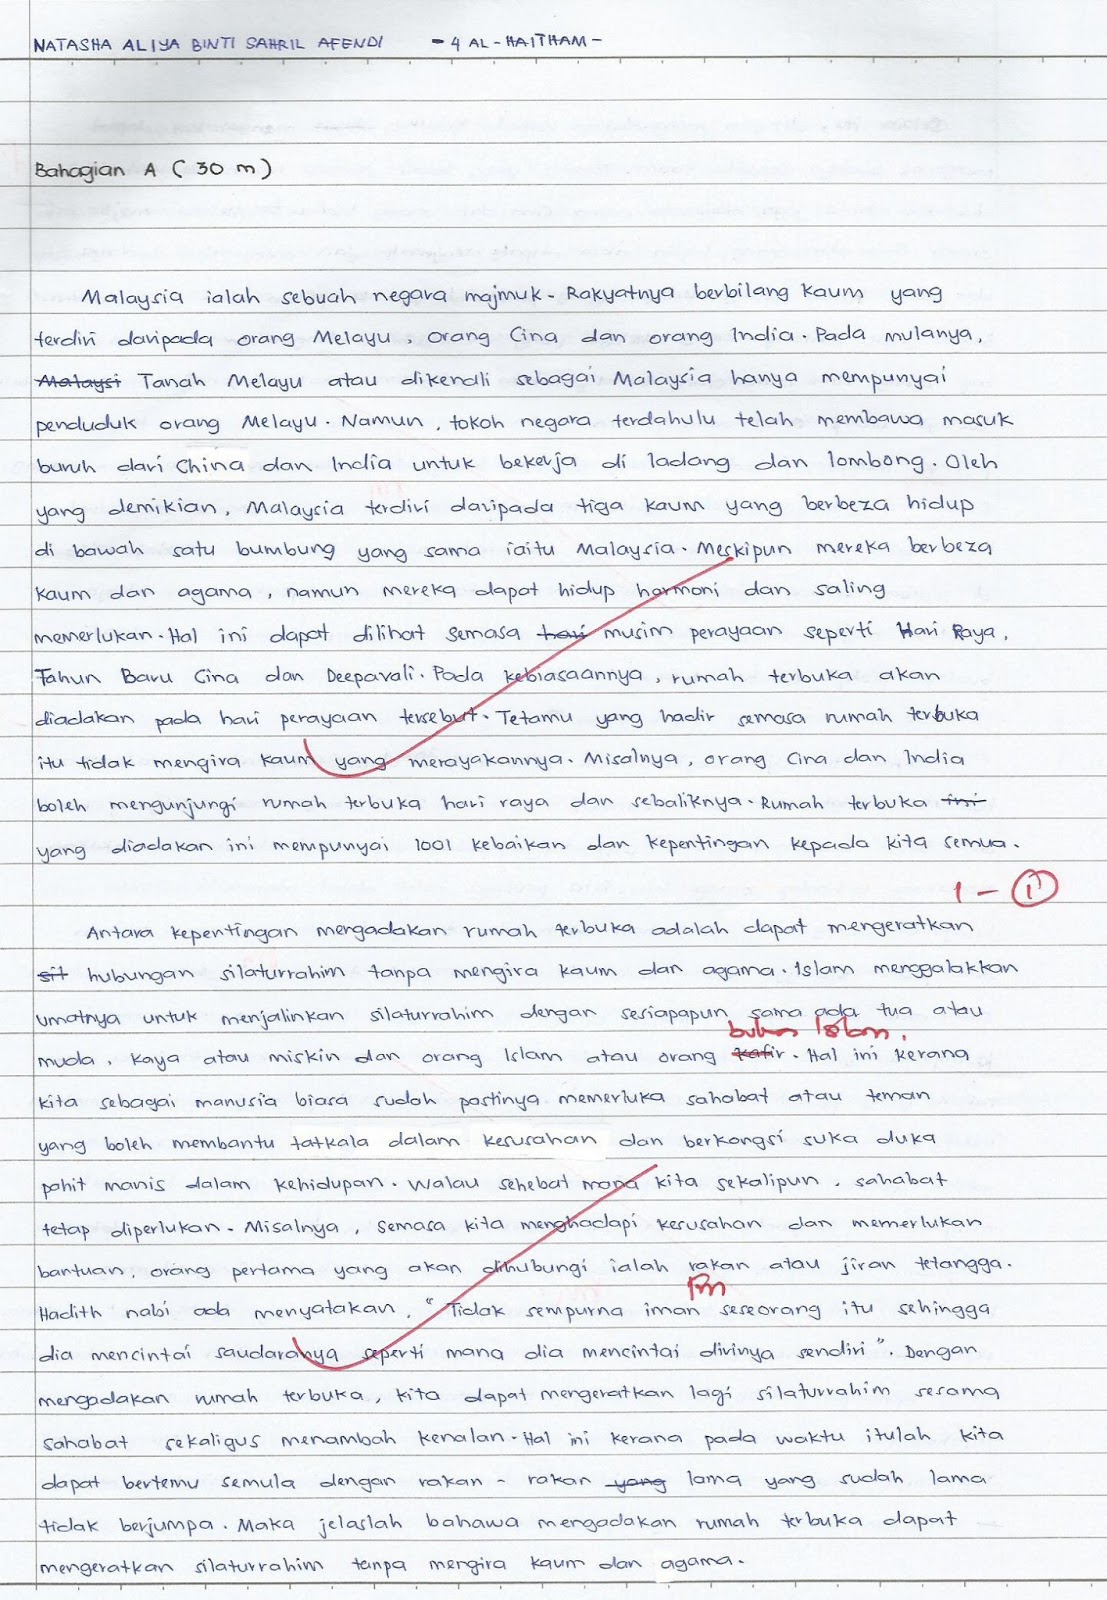 NATASHA ALIYA BINTI SAHRIL AFENDI - 4 AL-HAITHAM -
Bahagian A ( 30 m )
Malaysia ialah sebuah negara majmuk. Rakyatnya berbilang kaum yang
terdiri daripada orang Melayu, orang Cina dan orang India. Pada mulanya,
Malaysi Tanah Melayu atau dikenali sebagai Malaysia hanya mempunyai
penduduk orang Melayu. Namun, tokoh negara terdahulu telah membawa masuk
buruh dari China dan India untuk bekerja di ladang dan lombong. Oleh
yang demikian, Malaysia terdiri daripada tiga kaum yang berbeza hidup
di bawah satu bumbung yang sama iaitu Malaysia. Meskipun mereka berbeza
kaum dan agama, namun mereka dapat hidup harmoni dan saling
memerlukan. Hal ini dapat dilihat semasa hari musim perayaan seperti Hari Raya,
Tahun Baru Cina dan Deepavali. Pada kebiasaannya, rumah terbuka akan
diadakan pada hari perayaan tersebut. Tetamu yang hadir semasa rumah terbuka
itu tidak mengira kaum yang merayakannya. Misalnya, orang Cina dan India
boleh mengunjungi rumah terbuka hari raya dan sebaliknya. Rumah terbuka ini
yang diadakan ini mempunyai 1001 kebaikan dan kepentingan kepada kita semua.
1 -
Antara kepentingan mengadakan rumah terbuka adalah dapat mengeratkan
sit hubungan silaturrahim tanpa mengira kaum dan agama. Islam menggalakkan
umatnya untuk menjalinkan silaturrahim dengan sesiapapun sama ada tua atau
bukan Islam.
muda, kaya atau miskin dan orang Islam atau orang kafir. Hal ini kerana
kita sebagai manusia biasa sudah pastinya memerluka sahabat atau teman
yang boleh membantu tatkala dalam kesusahan dan berkongsi suka duka
pahit manis dalam kehidupan. Walau sehebat mana kita sekalipun, sahabat
tetap diperlukan. Misalnya, semasa kita menghadapi kesusahan dan memerlukan
bantuan, orang pertama yang akan dihubungi ialah rakan atau jiran tetangga.
Hadith nabi ada menyatakan, "Tidak sempurna iman seseorang itu sehingga
dia mencintai saudaranya seperti mana dia mencintai dirinya sendiri". Dengan
mengadakan rumah terbuka, kita dapat mengeratkan lagi silaturrahim sesama
sahabat sekaligus menambah kenalan. Hal ini kerana pada waktu itulah kita
dapat bertemu semula dengan rakan - rakan yang lama yang sudah lama
tidak berjumpa. Maka jelaslah bahawa mengadakan rumah terbuka dapat
mengeratkan silaturrahim tanpa mengira kaum dan agama.